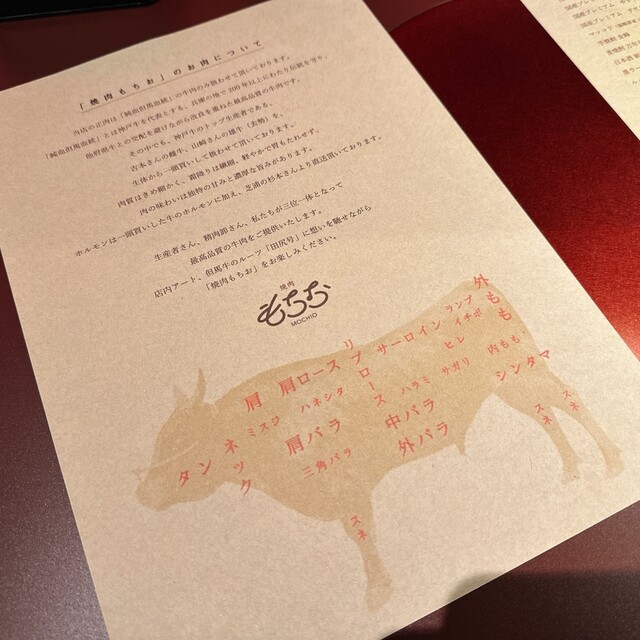 「焼肉もちお」のお肉について
当店の正肉は「純血但馬血統」の牛肉のみ扱わせて頂いております。
「純血但馬血統」とは神戸牛を代表とする、兵庫の地で200年以上にわたり伝統を守り、
他府県牛との交配を避けながら改良を重ねた最高品質の牛肉です。
その中でも、神戸牛のトップ生産者である、
吉本さんの雌牛、山崎さんの雄牛（去勢）を、
生体から一頭買いして扱わせて頂いております。
肉質はきめ細かく、霜降りは繊細、軽やかで胃もたれせず、
肉の味わいは独特の甘みと濃厚な旨みがあります。
ホルモンは一頭買いした牛のホルモンに加え、芝浦の杉本さんより直送頂いております。
生産者さん、精肉卸さん、私たちが三位一体となって
最高品質の牛肉をご提供いたします。
店内アート、但馬牛のルーツ「田尻号」に想いを馳せながら
「焼肉もちお」をお楽しみください。
焼肉
もちお
MOCHIO
タン
ネック
肩
ミスジ
肩ロース
ハネシタ
肩バラ
三角バラ
リブロース
サーロイン
ハラミ
中バラ
外バラ
ヒレ
サガリ
ランプ
イチボ
外もも
内もも
シンタマ
スネ
スネ
スネ